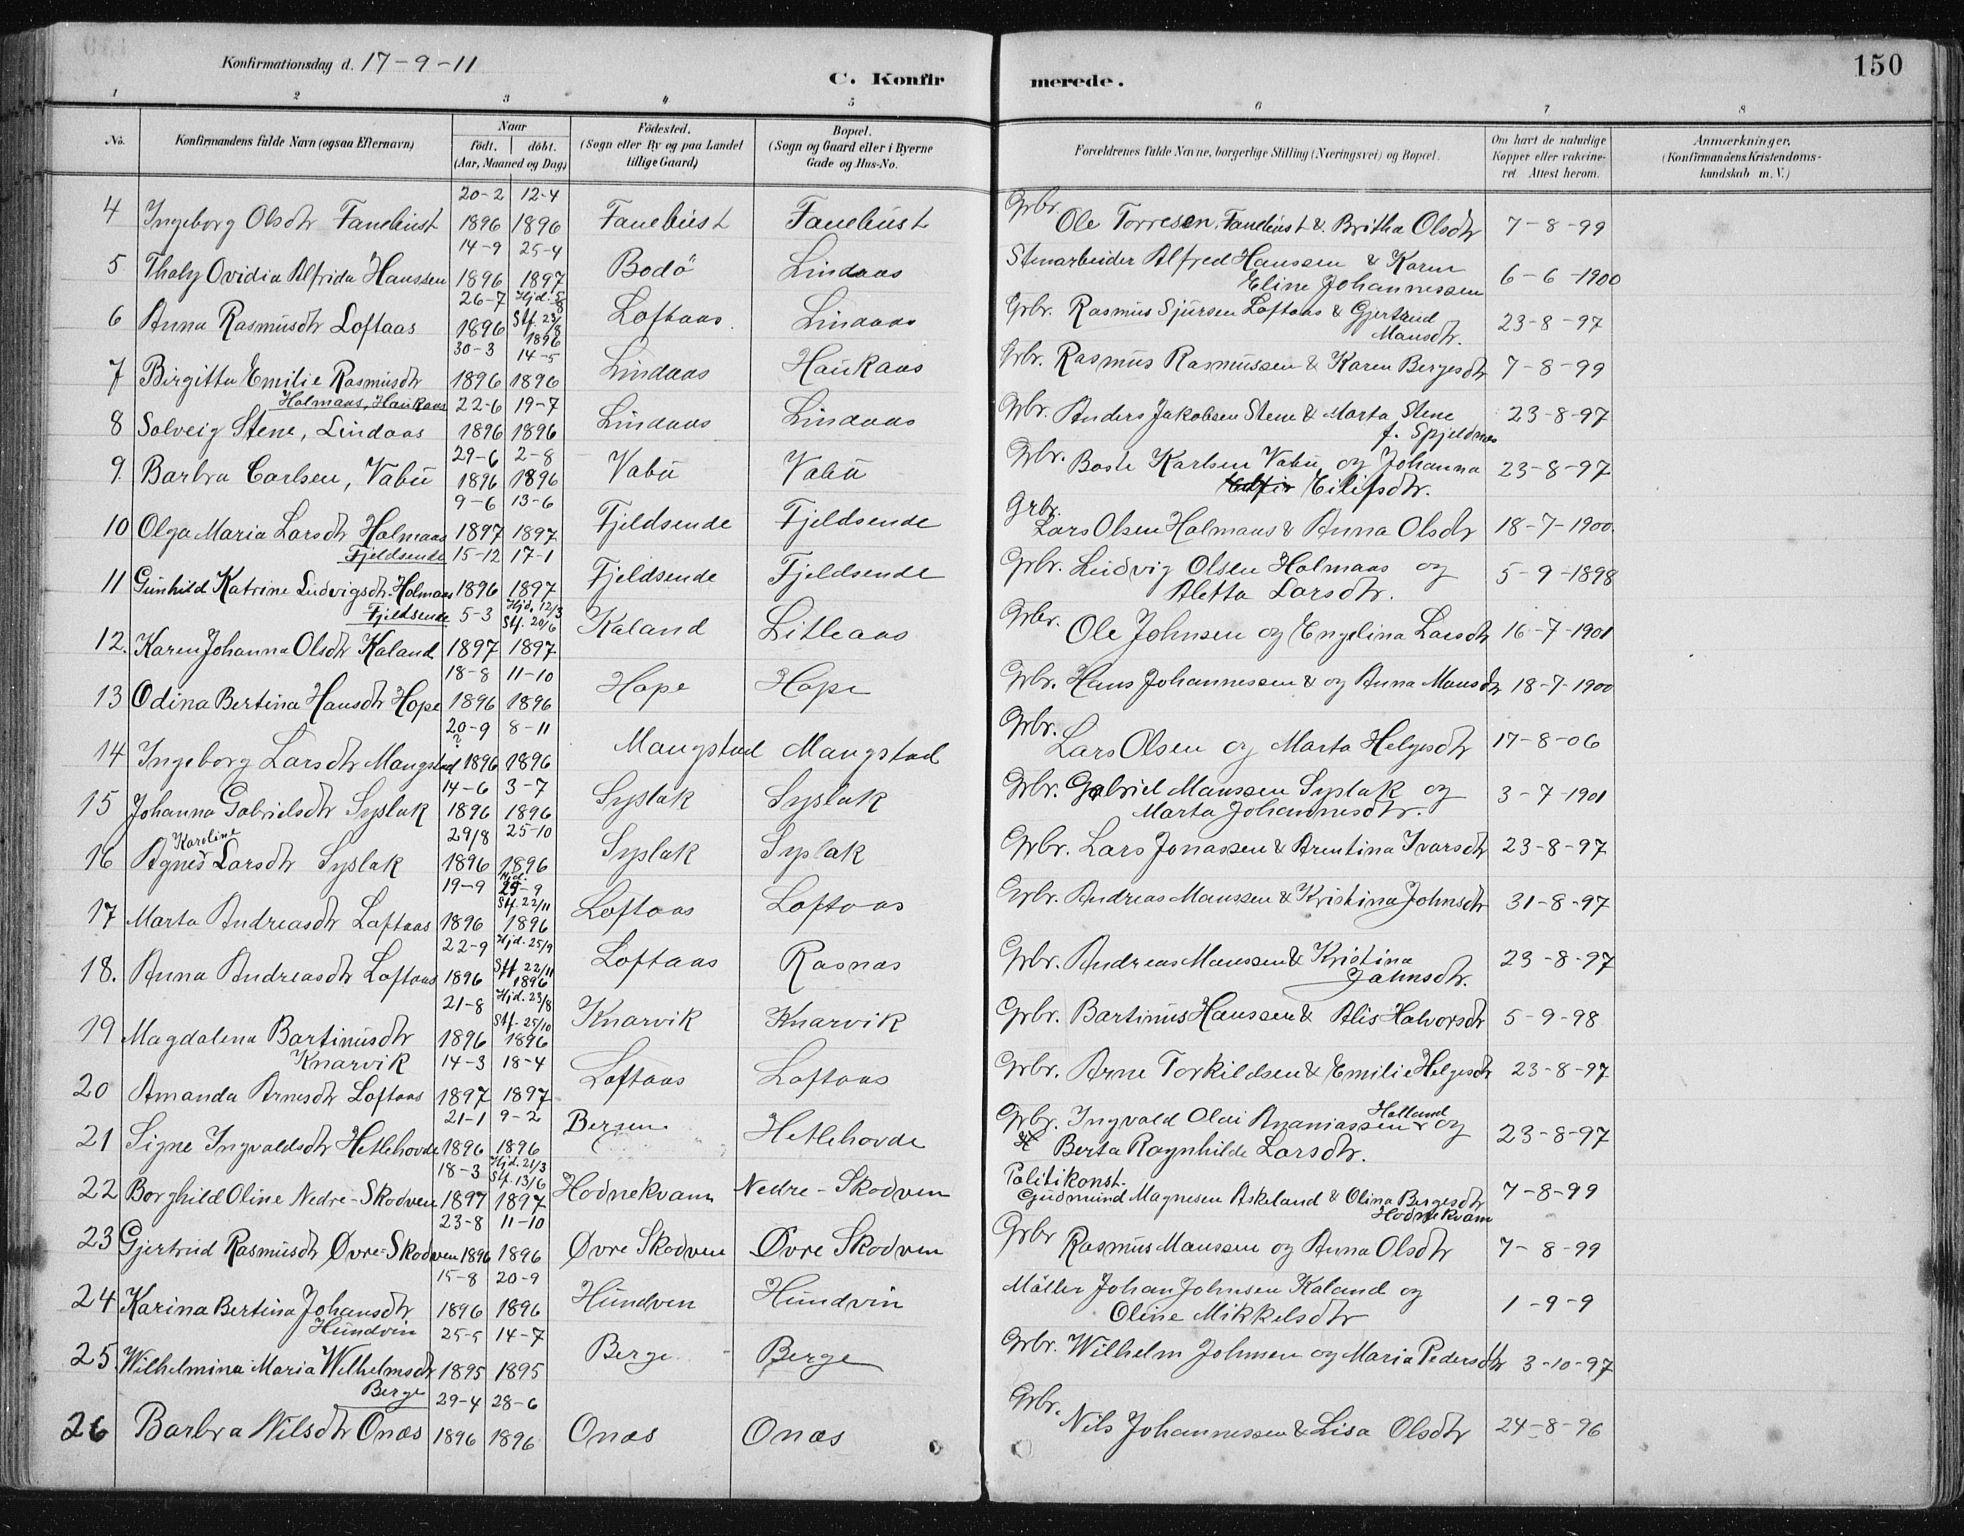 Konfirmationsdag d. 17-9-11
C. Konfirmerede.
150
1 2 3 4 5 6 7 8
No. Konfirmandens fulde Navn (ogsaa Efternavn) Naar födt. döbt. (Aar, Maaned og Dag) Födested. (Sogn eller By og paa Landet tillige Gaard) Bopæl. (Sogn og Gaard eller i Byerne Gade og Hus-No. Forældrenes fulde Navne, borgerlige Stilling (Næringsvei) og Bopæl. Om havt de naturlige Kopper eller vakcineret. Attest herom. Anmærkninger. (Konfirmandens Kristendomskundskab m. V.)
20-2 12-4
4 Ingeborg Olsdtr Fanebust 1896 1896 Fanebust Fanebust Grbr. Ole Torresen Fanebust & Britha Olsdtr 7-8-99
14-9 25-4
5 Thaly Ovidia Alfrida Hanssen 1896 1897 Bodö Lindaas Stenarbeider Alfred Hanssen & Karen
Eline Johannessen 6-6-1900
26-7 Hjd. 5/8 Stf. 23/8
6 Anna Rasmusdtr Loftaas 1896 1896 Loftaas Lindaas Grbr. Rasmus Sjursen Loftaas & Gjertrud
Mansdtr. 23-8-97
30-3 14-5
7 Birgitta Emilie Rasmusdtr 1896 1896 Lindaas Haukaas Grbr. Rasmus Rasmussen & Karen Bergesdtr 7-8-99
Holmaas, Haukaas 22-6 19-7
8 Solveig Stene, Lindaas 1896 1896 Lindaas Lindaas Grbr. Anders Jakobsen Stene & Marta Stene
f. Spjeldnes 23-8-97
29-6 2-8
9. Barbra Carlsen, Vabü 1896 1896 Vabü Vabü Grbr. Baste Karlsen Vabü og Johanna
Eilifsdtr. 23-8-97
9-6 13-6
10 Olga Maria Larsdtr Holmaas 1897 1897 Fjeldsende Fjeldsende Grbr. Lars Olsen Holmaas & Anna Olsdtr 18-7-1900
Fjeldsende 15-12 17-1
11 Gunhild Katrine Ludvigsdtr. Holmaas 1896 1897 Fjeldsende Fjeldsende Grbr. Ludvig Olsen Holmaas og
Aletta Larsdtr. 5-9-1898
Fjeldsende 5-3 Hjd. 12/3 Stf. 20/6
12. Karen Johanna Olsdtr Kaland 1897 1897 Kaland Litleaas Grbr. Ole Johnsen og Engelina Larsdtr 16-7-1901
18-8 11-10
13 Odina Bertina Hansdtr Hope 1896 1896 Hope Hope Grbr. Hans Johannessen & og Anna Mansdtr 18-7-1900
20-9 8-11
?
14 Ingeborg Larsdtr Mangstad 1896 1896 Mangstad Mangstad Grbr. Lars Olsen og Marta Helgesdtr 17-8-06
14-6 3-7
15 Johanna Gabrielsdtr Syslak 1896 1896 Syslak Syslak Grbr. Gabriel Manssen Syslak og
Marta Johannesdtr. 3-7-1901
Karoline 29/8 25-10
16 Agnes Larsdtr Syslak 1896 1896 Syslak Syslak Grbr. Lars Jonassen & Arentina Ivarsdtr 23-8-97
19-9 Hjd. 25-9 Stf. 22/11
17 Marta Andreasdtr Loftaas 1896 1896 Loftaas Loftaas Grbr. Andreas Manssen & Kristina Johnsdtr 31-8-97
22-9 Hjd. 25/9 Stf 22/11
18. Anna Andreasdtr Loftaas 1896 1896 Loftaas Rasnas Grbr. Andreas Manssen & Kristina
Johnsdtr. 23-8-97
21-8 Hjd. 23/8 Stf. 25/10
19 Magdalena Bartinusdtr 1896 1896 Knarvik Knarvik Grbr. Bartinus Hanssen & Alis Halvorsdtr 5-9-98
Knarvik 14-3 18-4
20 Amanda Arnesdtr Loftaas 1897 1897 Loftaas Loftaas Grbr. Arne Torkildsen & Emilie Helgesdtr 23-8-97
21-1 9-2
21 Signe Ingvaldsdtr Hetlehovde 1896 1896 Bergen Hetlehovde Grbr. Ingvald Olai Ananiassen Hatland og
Berta Ragnhilde Larsdtr. 23-8-97
18-3 Hjd. 21/3 Stf. 13/6
22 Borghild Oline Nedre-Skodven 1897 1897 Hodnekvam Nedre-Skodven Politikonst.
Gudmund Magnesen Askeland & Olina Bergesdtr
Hodnekvam 7-8-99
23-8 11-10
23 Gjertrud Rasmusdtr Øvre-Skodven 1896 1896 Øvre Skodven Øvre Skodven Grbr Rasmus Manssen og Anna Olsdtr 7-8-99
15-8 20-9
24 Karina Bertina Johansdtr 1896 1896 Hundven Hundvin Möller Johan Johnsen Kaland og
Oline Mikkelsdtr 1-9-9
Hundvin 25-5 14-7
25. Wilhelmina Maria Wilhelmsdtr 1895 1895 Berge Berge Grbr. Wilhelm Johnsen og Maria Pedersdtr 3-10-97
Berge 29-4 28-6
26 Barbra Nilsdtr Onas 1896 1896 Onas Onas Grbr. Nils Johannessen & Lisa Olsdtr 24-8-96